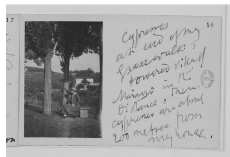 17
58
Cypresses
at end of my
grass walk :
towered village
in the
distance, These
cypresses are about
200 metres from
my house.